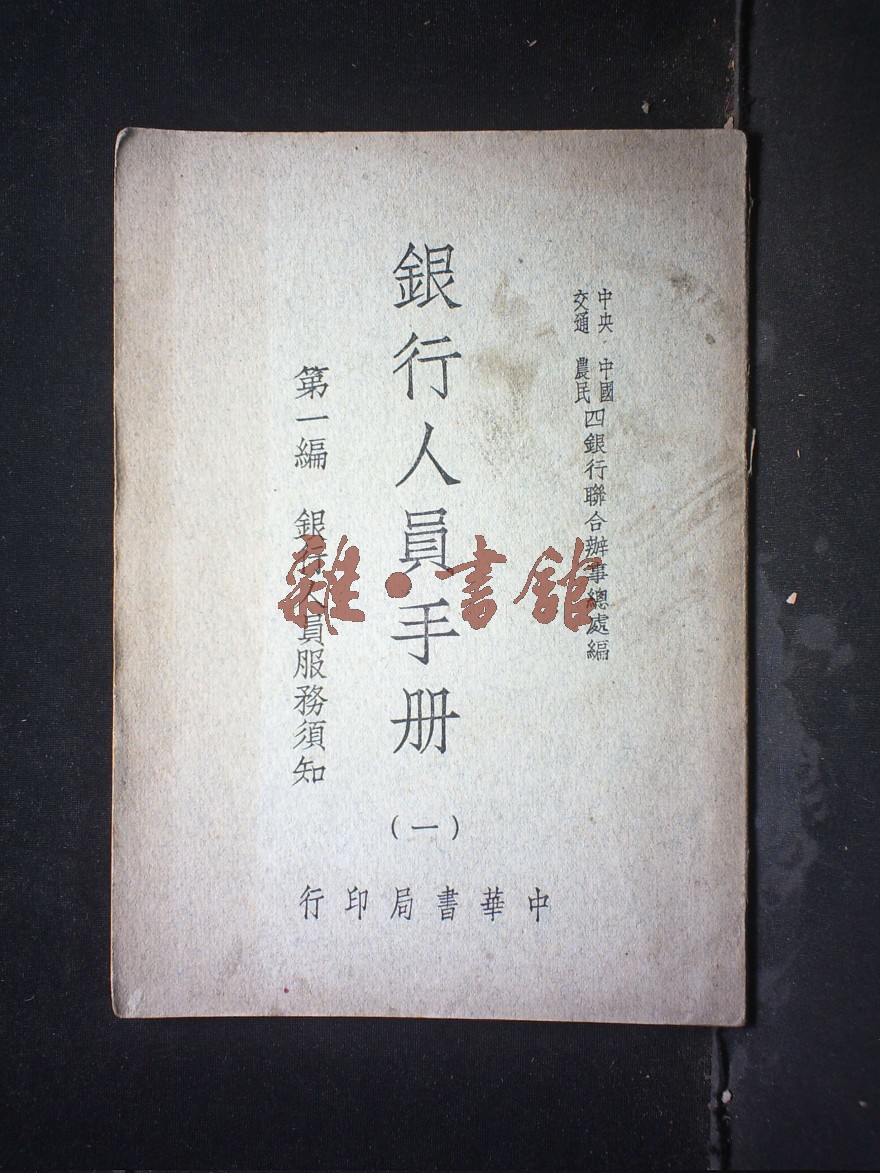 中央 中國
交通 農民
四銀行聯合辦事總處編
銀行人員手册
(一)
第一編 銀行人員服務須知
中華書局印行
雜·書館